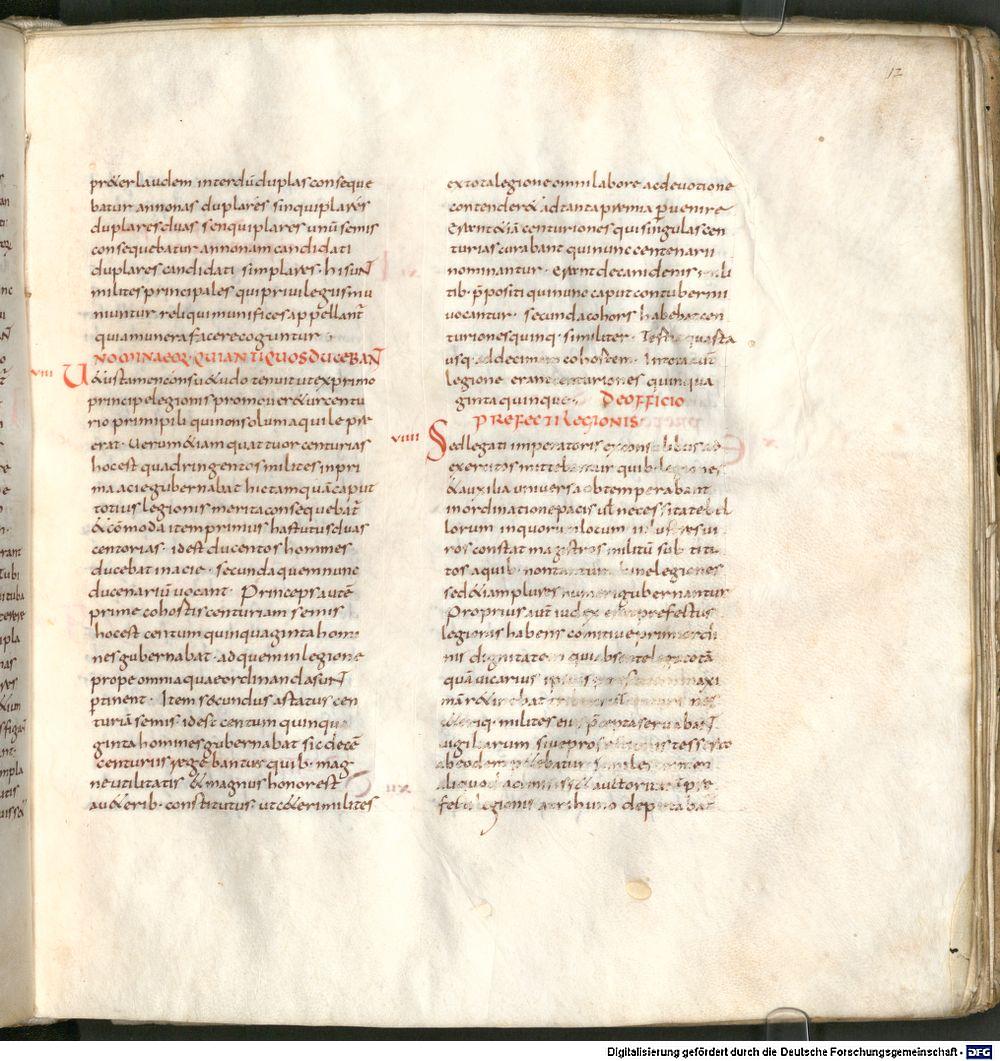 12
pr&er laudem interdū duplas conseque
batur annonas duplares sinquiplares
duplares duas senquiplares unū semis
consequebatur annonam candidati
duplares candidati simplares· hi sunt
milites principales qui privilegiis mu
nuntur reliqui munifices appellant̄
quia munera facere coguntur·
NOMINA EOR· QUI ANTIQUOS DUCEBANT
VIII U&us tamen consu&udo tenuit ut ex primo
principe legionis promover&ur centu
rio primipili qui non solum aquile pre
erat· Uerum &iam quattuor centurias
hoc est quadringentos milites in pri
ma acie gubernabat hic tamquā caput
totius legionis merita consequebat̄
& cōmoda item primus hastutus duas
centorias· id est ducentos hommes
ducebat in acie· secunda quem nunc
ducenariū uocant· Princeps autē
prime cohostis centuriam semis
hoc est centum quinquaginta homi
nes gubernabat· ad quem in legione
prope omnia quae ordinanda sunt
ptinent· Item secundus astatus cen
turiā semis id est centum quinqua
ginta homines gubernabat sic decē
centuriis regebantur quib· mag
ne utilitatis & magnus honor est
au&erib· constitutus ut c&eri milites
ex tota legione omni labore ac devotione
contender& ad tanta premia p̱uenire
Erant &iā centuriones qui singulas cen
turias curabant qui nunc centenarii
nominantur· Erant decani denis mili
tib· p̄positi qui nunc caput contubernii
vocantur· secunda cohors habebat cen
turiones quinq· similiter· Tertia quarta
usq· ad decimam cohostem· In tota aut̄
legione erant centuriones quinqua
ginta quinque· DE OFFICIO
PREFECTI LEGIONIS
VIIII Sed legati imperatoris ex consulibus ad
exercitos mittebantur quib· legiones
& auxilia universa obtemperabant
in ordinatione pacis ul̄ necessitate bel
lorum in quorum locum inlustres ui
ros constat magistros militū sub titu
tos a quib· non tantum bine legiones
sed &iam plures numeri gubernantur
Proprius aut̄ iudex erat prefectus
legionis habens comitive primi ordi
nis dignitatem qui absente legato tā
quā vicarius ipsius potestatem maxi
mā r&inebat
c&eriq· milites eius p̄cepta servabant
uigiliarum sive profectionis tessera
ab eodem dabatur Si miles crimen
aliquod admisiss& auctoritate pre
fecti legionis a tribuno deputabat̄
Digitalisierung gefördert durch die Deutsche Forschungsgemeinschaft - DFG